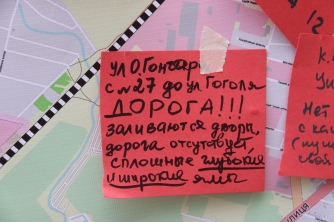 ул О.Гончар
с №27 до ул Гоголя
ДОРОГА!!!
заливаются дворы,
дорога отсутсвует,
сплошные глубокие
и широкие ямы
К.
Ул
Нет
с ка
свой
1/2